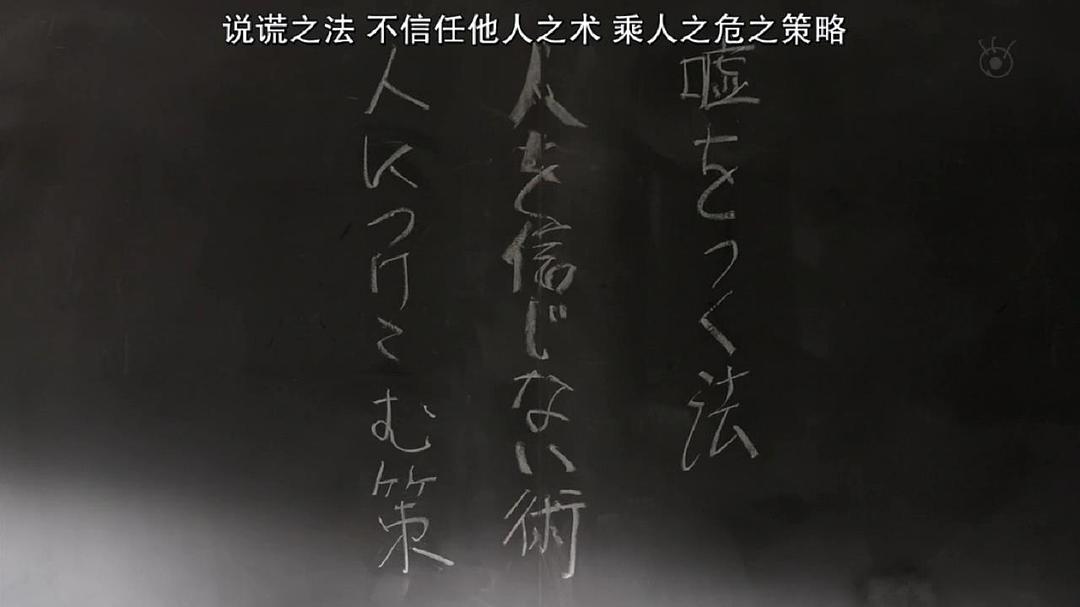 说谎之法 不信任他人之术 乘人之危之策略
嘘をつく法
人を信じない術
人につけこむ策